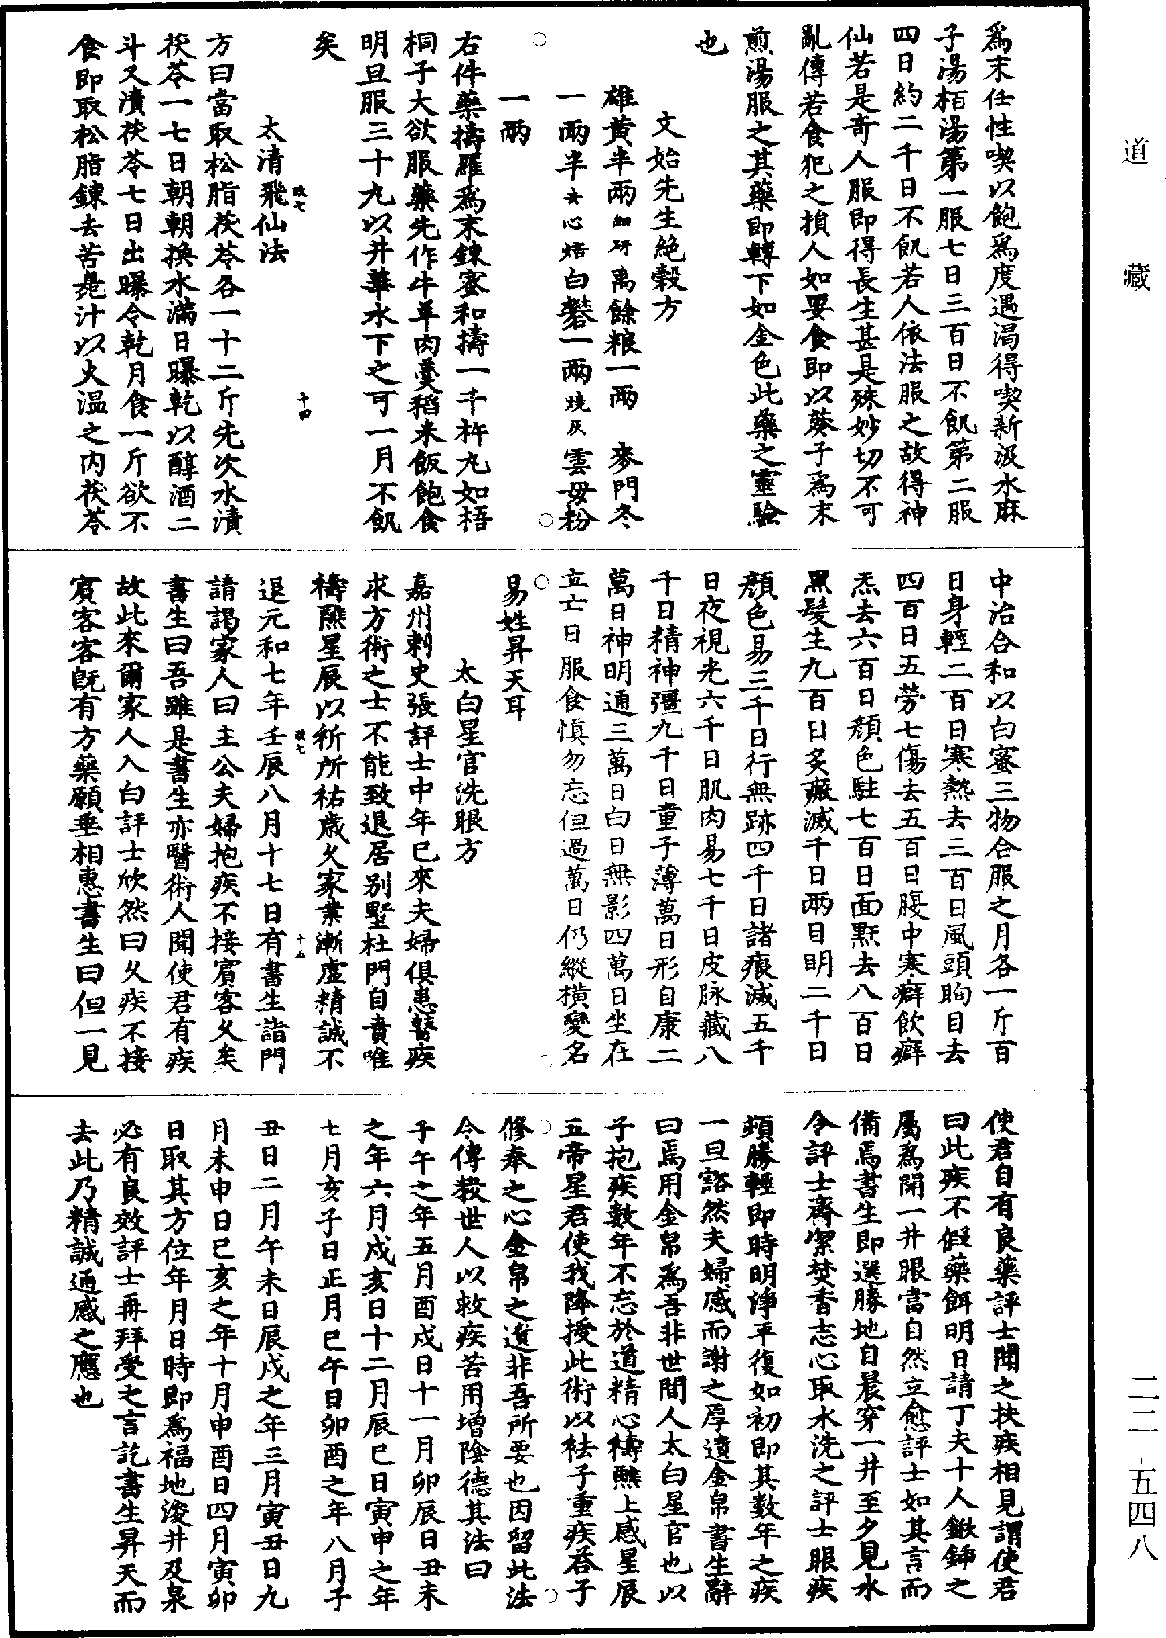 爲末任性喫以飽爲度遇渴得喫新汲水麻
子湯栢湯第一服七日三百日不飢第二服
四日約二千日不飢若人依法服之故得神
仙若是奇人服即得長生甚是殊妙切不可
亂傳若食犯之損人如要食即以葵子爲末
煎湯服之其藥即轉下如金色此藥之靈驗
也
文始先生絕穀方
雄黃半兩細研禹餘粮一兩　麥門冬
一兩半去心焙白礬一兩燒灰雲母粉
一兩
右件藥擣羅爲末鍊蜜和擣一千杵丸如梧
桐子大欲服藥先作牛羊肉羹稻米飯飽食
明旦服三十九以井華水下之可一月不飢
矣
太清飛仙法
方曰當取松脂茯苓各一十二斤先次水漬
茯苓一七日朝朝換水滿日曝乾以醇酒二
斗又漬茯苓七日出曝令乾月食一斤欲不
食即取松脂鍊去苦臰汁以火温之内茯苓
中治合和以白蜜三物合服之月各一斤百
日身輕二百日寒熱去三百日風頭眴目去
四百日五勞七傷去五百日腹中寒癖飲癖
炁去六百日顏色駐七百日面黑去八百日
黑髮生九百日炙瘢滅千日兩目明二千日
顏色易三千日行無跡四千日諸痕滅五千
日夜視光六千日肌肉易七千日皮脉藏八
千日精神彊九千日童子薄萬日形自康二
萬日神明通三萬日白日無影四萬日坐在
立亡日服食慎勿忘但過萬日仍縱橫變名
易姓昇天耳
太白星官洗眼方
嘉州刺史張評士中年已來夫婦俱患瞽疾
求方術之士不能致退居別墅杜門自責唯
禱醮星辰以祈所祐歲久家業漸虛精誠不
退元和七年壬辰八月十七日有書生詣門
請謁家人曰主公夫婦抱疾不接賓客久矣
書生曰吾雖是書生亦醫術人聞使君有疾
故此來爾家人入白評士欣然曰久疾不接
賓客客旣有方藥願垂相惠書生曰但一見
使君自有良藥評士聞之扶疾相見謂使君
曰此疾不假藥餌明日請丁夫十人鍬鍤之
屬爲開一井眼當自然立愈評士如其言而
備焉書生即選勝地自晨穿一井至夕見水
令評士齋潔焚香志心取水洗之評士眼疾
頓勝輕即時明淨平復如初即其數年之疾
一旦豁然夫婦感而謝之厚遺金帛書生辭
曰焉用金帛爲吾非世間人太白星官也以
子抱疾數年不忘於道精心禱醮上感星辰
五帝星君使我降授此術以祛子重疾荅子
修奉之心金帛之遺非吾所要也因留此法
令傳救世人以救疾苦用增陰德其法曰
子午之年五月酉戌日十一月卯辰日丑未
之年六月戌亥日十二月辰巳日寅申之年
七月亥子日正月巳午日卯酉之年八月子
丑日二月午未日辰戌之年三月寅丑日九
月未申日巳亥之年十月申酉日四月寅卯
日取其方位年月日時即爲福地浚井及泉
必有良效評士再拜受之言訖書生昇天而
去此乃精誠通感之應也
道　藏
二二-五四八